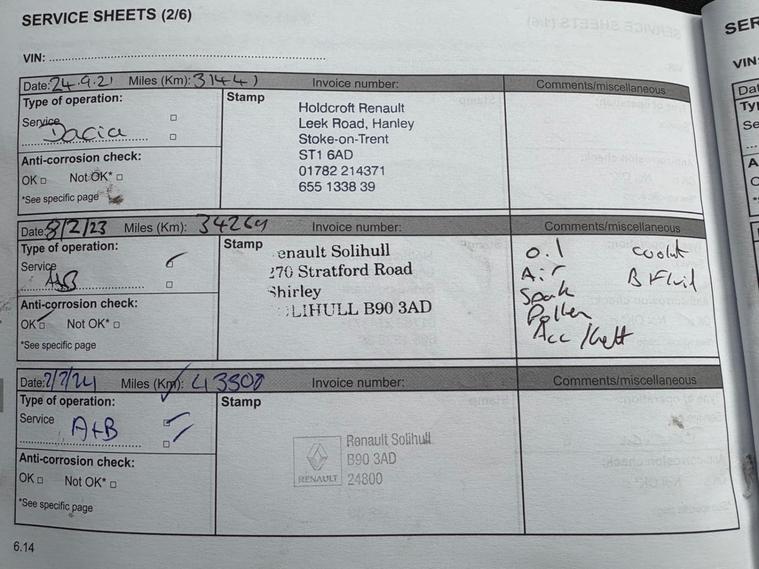 SERVICE SHEETS (2/6)
VIN:
Date: 24.9.21 Miles (Km): 31441 Invoice number: Comments/miscellaneous
Type of operation: Stamp
Service
Dacia
Anti-corrosion check:
OK Not OK*
*See specific page
Holdcroft Renault
Leek Road, Hanley
Stoke-on-Trent
ST1 6AD
01782 214371
655 1338 39
Date: 8/2/23 Miles (Km): 34264 Invoice number: Comments/miscellaneous
Type of operation: Stamp
Service
A+B
Anti-corrosion check:
OK Not OK*
*See specific page
enault Solihull
270 Stratford Road
Shirley
LIHULL B90 3AD
Oil Coolnt
Air B Fluid
Spark
Pollen
Acc/belt
Date: 2/2/24 Miles (Km): 43508 Invoice number: Comments/miscellaneous
Type of operation: Stamp
Service
A+B
Anti-corrosion check:
OK Not OK*
*See specific page
Renault Solihull
B90 3AD
RENAULT 24800
6.14
SER
VIN: